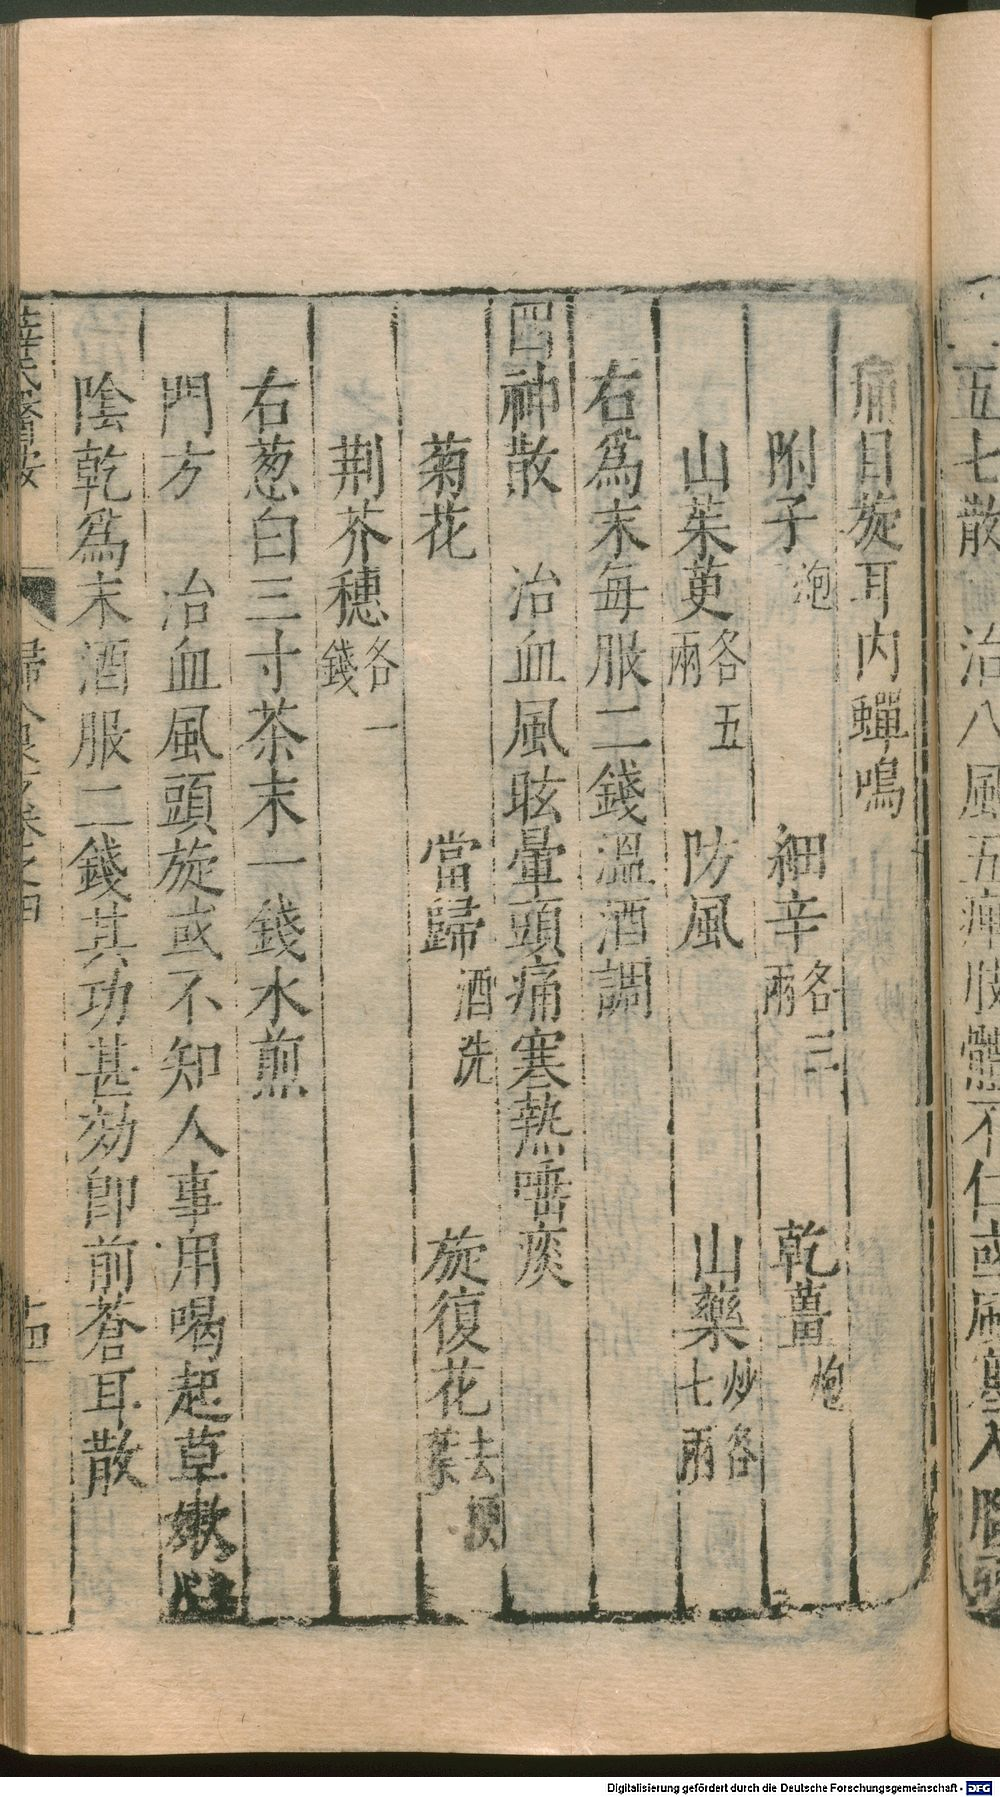 五七散　治八風五痺肢體不仁或風寒入腦頭
痛目旋耳内蟬鳴
附子炮　細辛各三兩　乾薑炮
山茱萸各五兩　防風　山藥炒各七兩
右爲末每服二錢溫酒調
四神散　治血風眩暈頭痛寒熱唾痰
菊花　當歸酒洗　旋復花去梗葉
荆芥穗各一錢
右葱白三寸茶末一錢水煎
門方　治血風頭旋或不知人事用喝起草嫩
陰乾爲末酒服二錢其功甚効卽前蒼耳散
薛氏醫按　婦人良方卷之四　十四
Digitalisierung gefördert durch die Deutsche Forschungsgemeinschaft - DFG